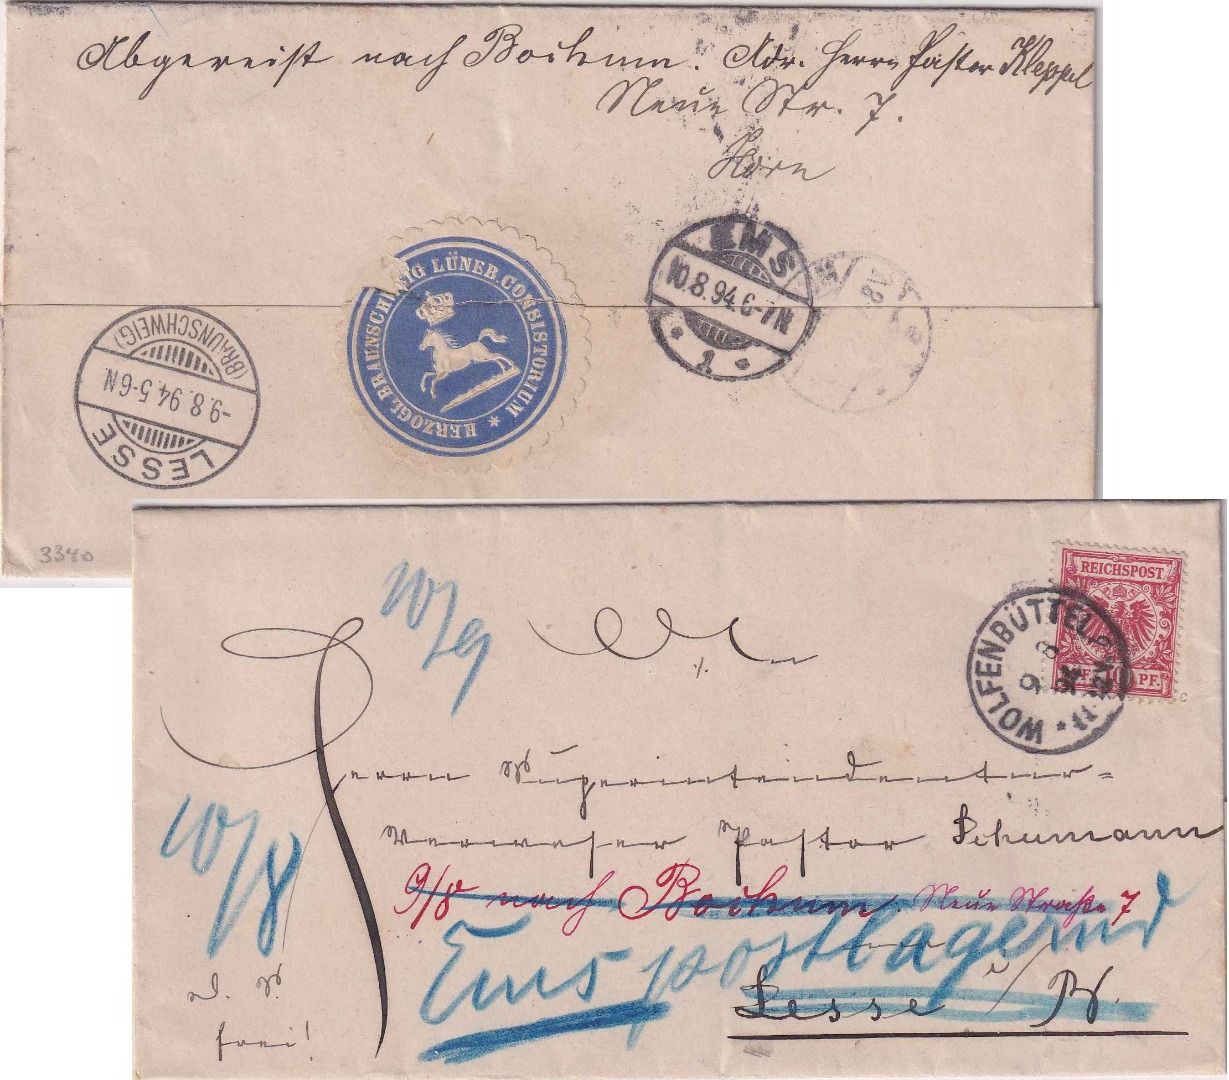 Abgereist nach Bochum. Adr. Herrn Pastor Kleppel
Neue Str. 7.
HERZOGL. BRAUNSCHWEIG LÜNEB. CONSISTORIUM *
EMS
10.8.94.6-7N.
* 1 *
LESSE
-9.8.94.5-6N.
(BRAUNSCHWEIG)
3340
REICHSPOST
10 PF.
WOLFENBÜTTEL
9 8
10/9
An
Herrn Superintendentur-
Verweser Pastor Schumann
9/8 nach Bochum. Neue Straße 7
10/8
Ems postlagernd
Lesse i/B.
frei!